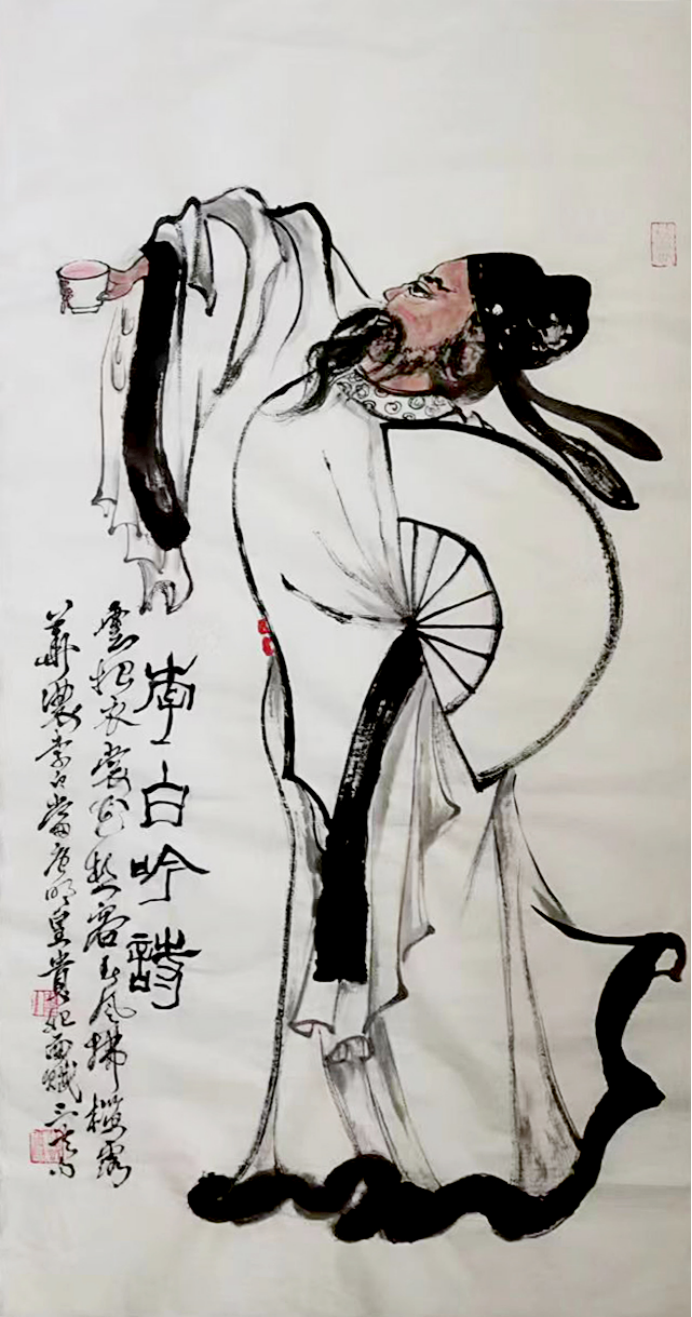 李白吟詩
雲想衣裳花想容春風拂檻露
華濃李白當唐明皇貴妃面賦